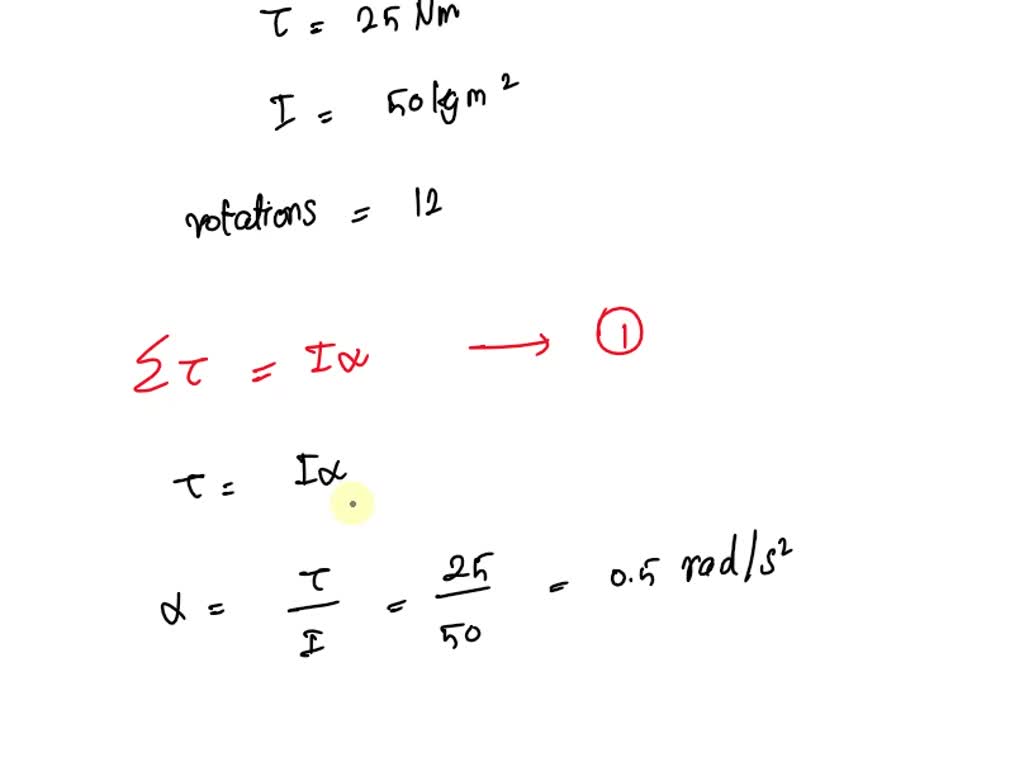 τ = 25 Nm
I = 50 kgm²
rotations = 12
Στ = Iα → ①
τ = Iα
α = τ/I = 25/50 = 0.5 rad/s²